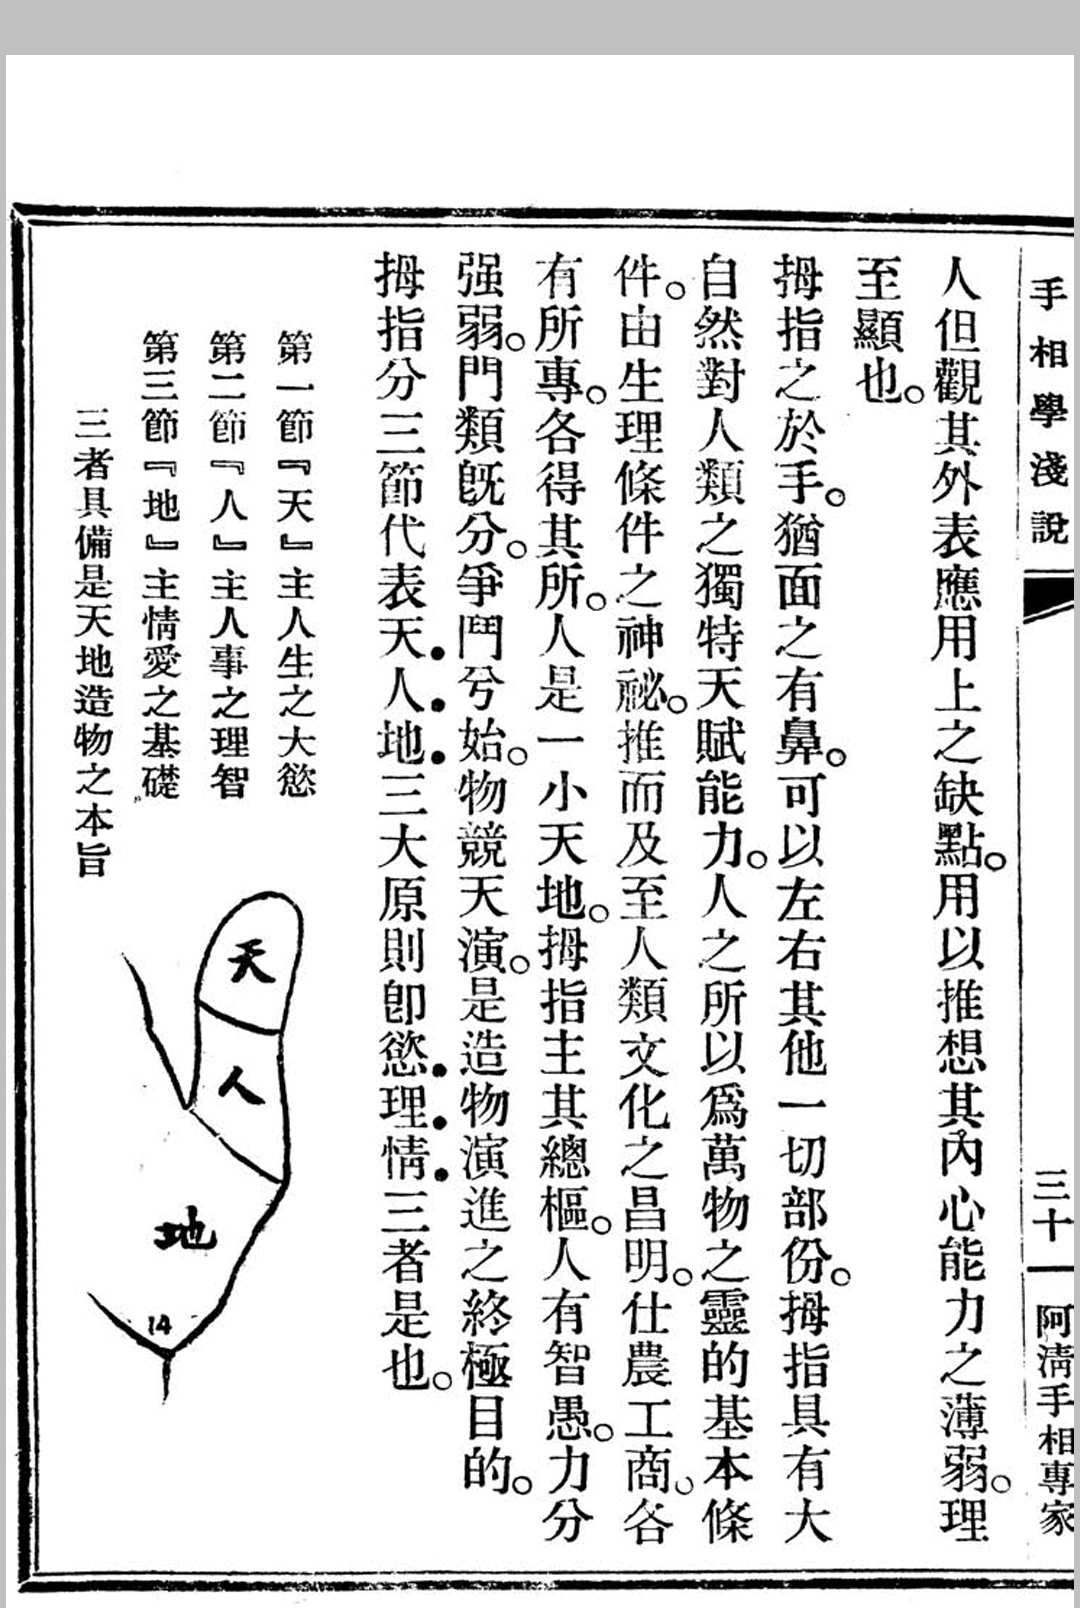 手相學淺說
三十
阿淸手相專家
人但觀其外表應用上之缺點。用以推想其內心能力之薄弱。理
至顯也。
拇指之於手。猶面之有鼻。可以左右其他一切部份。拇指具有大
自然對人類之獨特天賦能力。人之所以爲萬物之靈的基本條
件。由生理條件之神祕。推而及至人類文化之昌明。仕農工商。各
有所專。各得其所。人是一小天地。拇指主其總樞。人有智愚。力分
强弱。門類旣分。爭鬥兮始。物競天演。是造物演進之終極目的。
拇指分三節代表天人地三大原則卽慾理情三者是也。
第一節『天』主人生之大慾
第二節『人』主人事之理智
第三節『地』主情愛之基礎
三者具備是天地造物之本旨
天
人
地
14